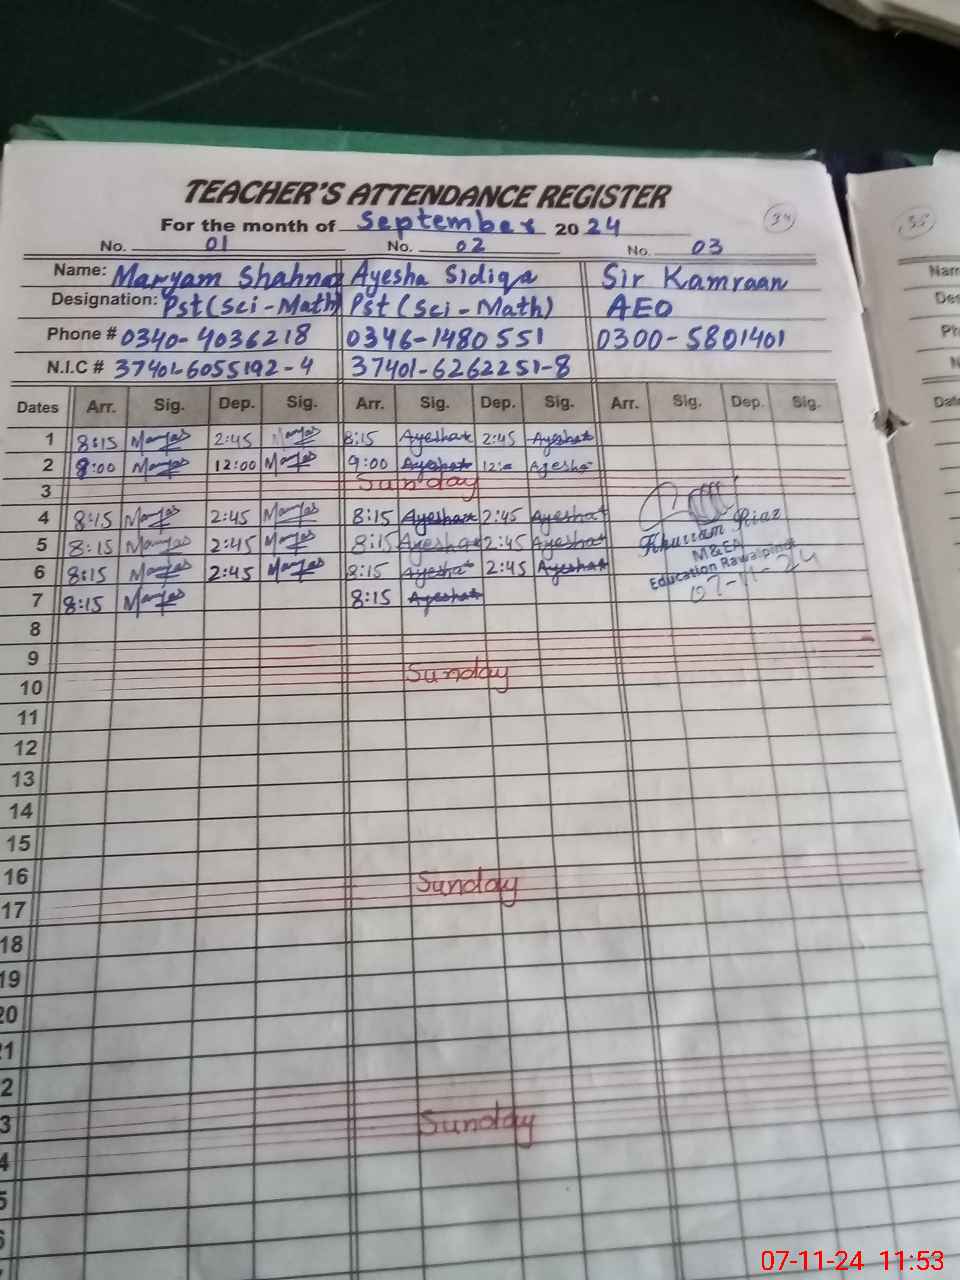 TEACHER'S ATTENDANCE REGISTER
For the month of September 2024
34
No. 01 No. 02 No. 03
Name: Maryam Shahnaz Ayesha Sidiqa Sir Kamraan
Designation: Pst (Sci-Math) Pst (Sci-Math) AEO
Phone # 0340-4036218 0346-1480551 0300-5801401
N.I.C # 37401-6055192-4 37401-6262251-8
Dates Arr. Sig. Dep. Sig. Arr. Sig. Dep. Sig. Arr. Sig. Dep. Sig.
1 8:15 2:45 8:15 Ayesha 2:45 Ayesha
2 8:00 12:00 9:00 Ayesha Ayesha
3 Sunday
4 8:15 2:45 8:15 Ayesha 2:45 Ayesha
5 8:15 2:45 8:15 Ayesha 2:45 Ayesha
6 8:15 2:45 8:15 Ayesha 2:45 Ayesha
7 8:15 8:15 Ayesha
Khurram Riaz
M&EA
Education Rawalpindi
07-11-24
8
9
Sunday
10
11
12
13
14
15
16 Sunday
17
18
19
20
21
2
3 Sunday
4
5
6
35
Nam
Des
Ph
N
Date
07-11-24 11:53